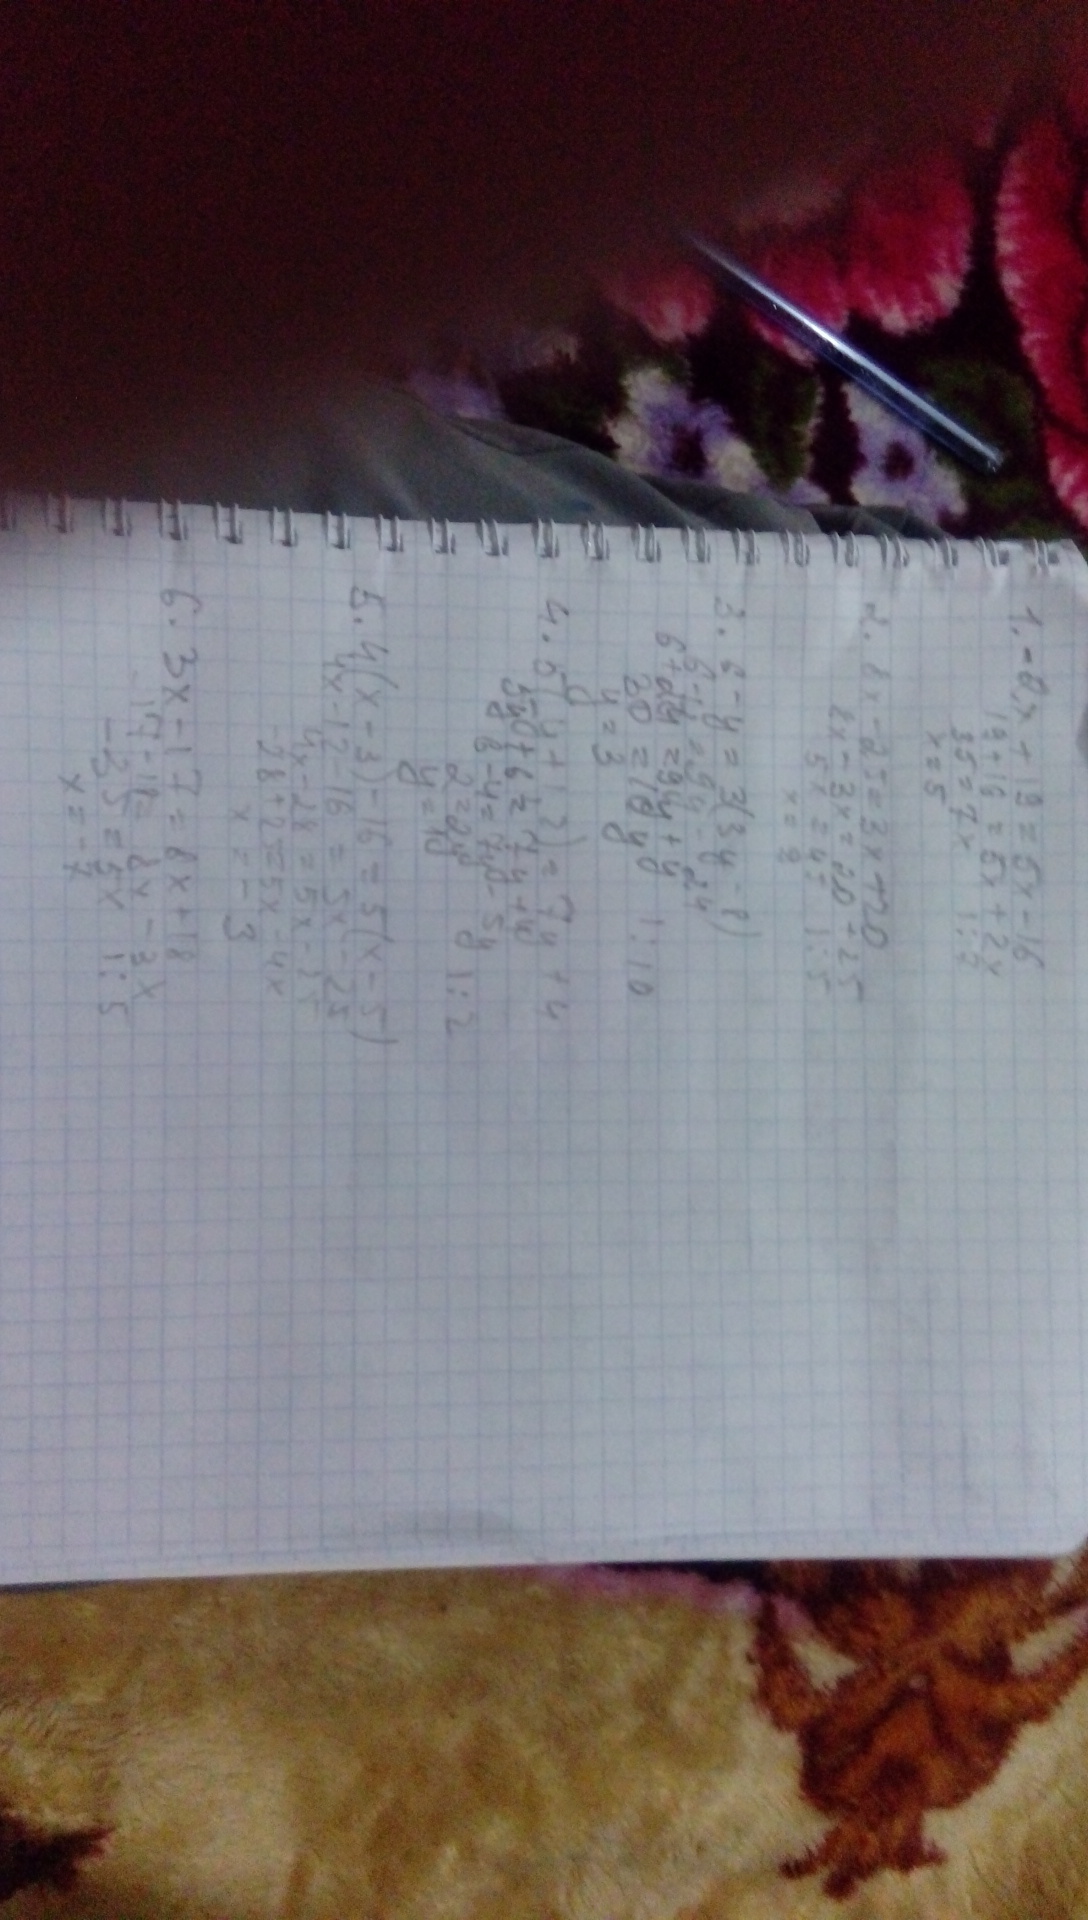 19+16=5x+2x
35=7x 1:7
x=5
2. 8x-25=3x+20
8x-3x=20+25
5x=45 1:5
x=9
3. 6-y=3(3y-8)
6-y=9y-24
=9y+y
30=10y 1:10
y=3
=7y+4
5y+6=7y+4
6-4=7y-5y
2=2y 1:2
5. 4(x-3)-16=5(x-5)
4x-12-16=5x-25
4x-28=5x-25
-28+25=5x-4x
x=-3
6. 3x-17=8x+18
-17-18=8x-3x
-35=5x 1:5
x=-7